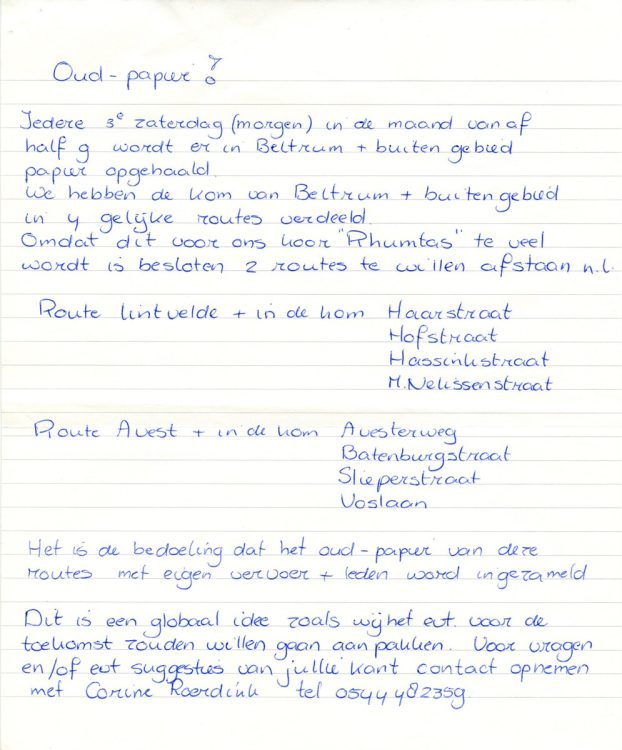 Oud-papier ?!
Iedere 3e zaterdag (morgen) in de maand van af
half 9 wordt er in Beltrum + buiten gebied
papier opgehaald.
We hebben de kom van Beltrum + buitengebied
in 4 gelijke routes verdeeld.
Omdat dit voor ons koor "Rhumtas" te veel
wordt is besloten 2 routes te willen afstaan n.l.
Route Lintvelde + in de kom Haarstraat
Hofstraat
Hassinkstraat
M. Nelissenstraat
Route Avest + in de kom Avesterweg
Batenburgstraat
Slieperstraat
Voslaan
Het is de bedoeling dat het oud-papier van deze
routes met eigen vervoer + leden word ingezameld
Dit is een globaal idee zoals wij het evt. voor de
toekomst zouden willen gaan aan pakken. Voor vragen
en/of evt suggesties van jullie kant contact opnemen
met Corine Roerdink tel 0544 482359